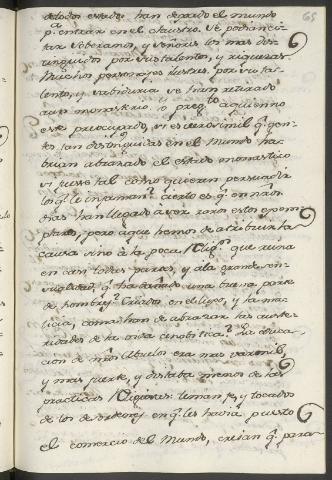 de todos estados han dexado el mundo 65
p.ª entrar en el claustro. Se podrian ci-
tar soberanos, y señores los mas dis-
tinguidos por sus talentos, y riquezas.
Muchos personajes ilustres por su ta-
lento, y sabiduria se han retirado
a un monasterio. Yo preg.to a quien no
este preocupado, si es verosimil q.e gen-
tes tan distinguidas en el mundo ha-
brian abrazado el estado monastico
si fuese tal como quieren persuadir
los q.e le infaman? cierto es q.e en nros
dias han llegado a ser raros estos exem-
plares, pero a que hemos de atribuir la
causa sino à la poca Relig.on que reina
en casi todas partes, y à la grande sen-
sualidad, q.e ha una buena parte
de hombres? Criados en el lujo, y la ma-
licia, como han de abrazar las auste-
ridades de la vida cenobitica? La educa-
cion de nros Abuelos era mas varonil,
y mas fuerte, y distaba menos de las
practicas Religiosas: teman.te, y tocados
de los desordenes en q.e les havia puesto
el comercio del Mundo, creian q.e para